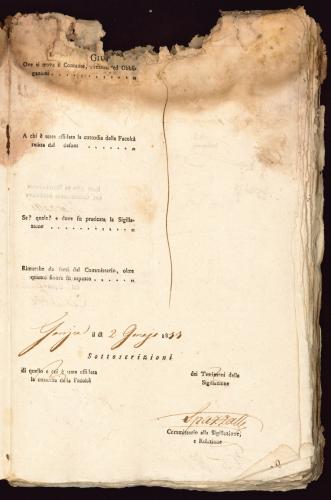 Ove si trova il Contante,
ganti
A chi è stata affidata la custodia della Facoltà
relitta dal defunto
Se? quale? e dove fu praticata la Sigilla-
zione
Rimarche da farsi dal Commissario, oltre
quanto finora fu esposto
li 2 1833
Sottoscrizioni
di quello a cui è stata affidata
la custodia della Facoltà
dei Testimonj della
Sigillazione
Commissario alla Sigillazione,
e Relazione